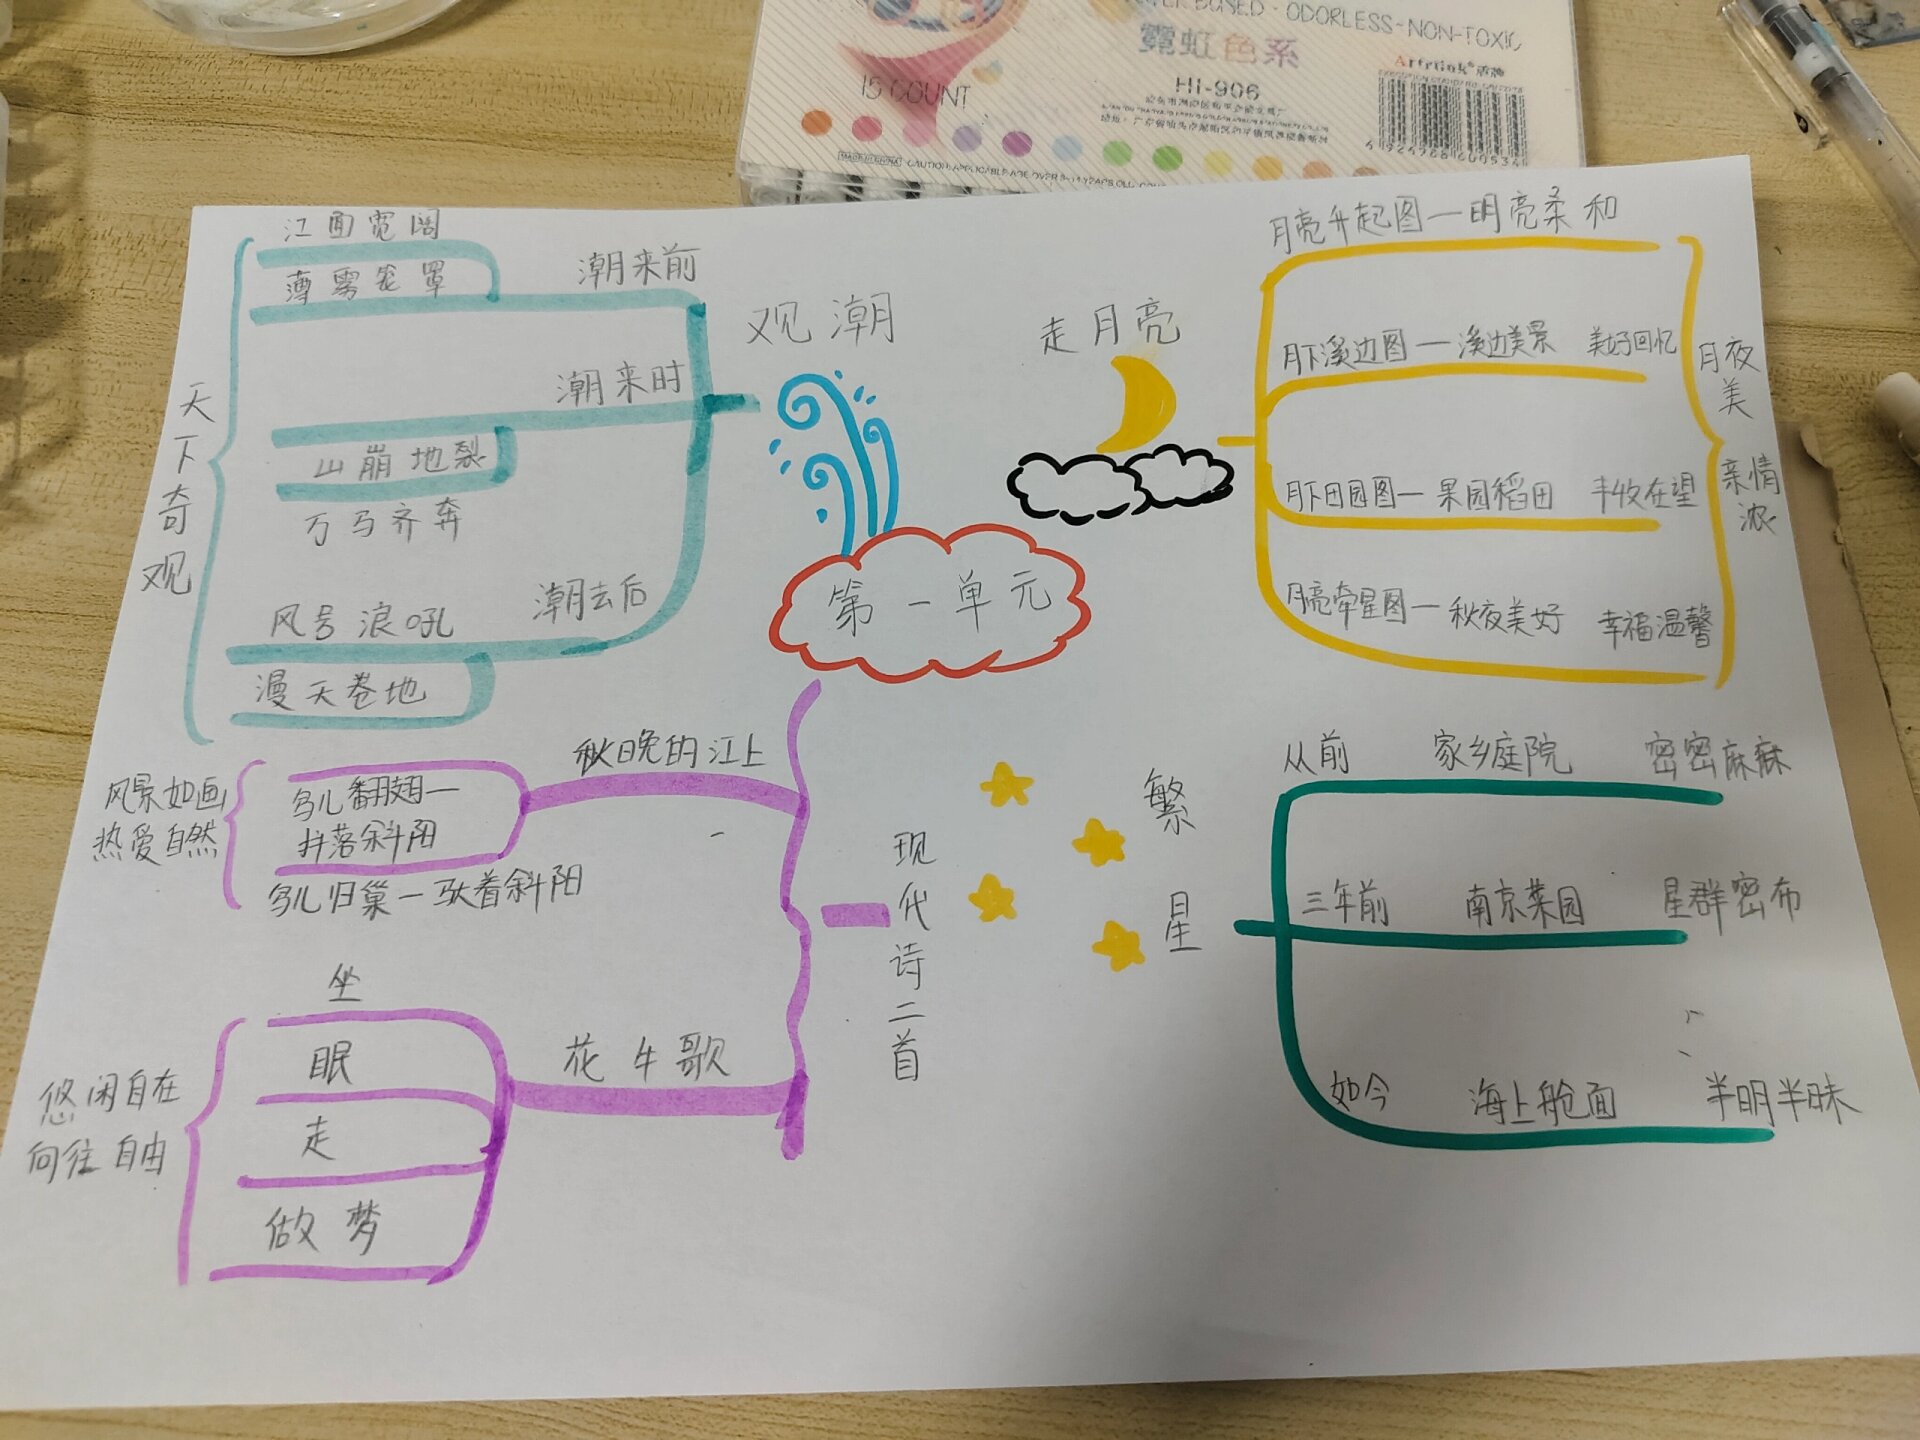 WATER BASED · ODORLESS~NON-TOXIC
霓虹色系
Artrink
15 COUNT
HI-906
MADE IN CHINA
第一单元
观潮
潮来前
江面宽阔
薄雾笼罩
潮来时
山崩地裂
万马齐奔
潮去后
风号浪吼
漫天卷地
天下奇观
走月亮
月亮升起图—明亮柔和
月下溪边图—溪边美景 美好回忆
月下田园图—果园稻田 丰收在望
月亮牵星图—秋夜美好 幸福温馨
月夜美
亲情浓
现代诗二首
秋晚的江上
鸟儿翻翅—
抖落斜阳
鸟儿归巢—驮着斜阳
风景如画
热爱自然
花牛歌
坐
眠
走
做梦
悠闲自在
向往自由
繁星
从前 家乡庭院 密密麻麻
三年前 南京菜园 星群密布
如今 海上舱面 半明半昧